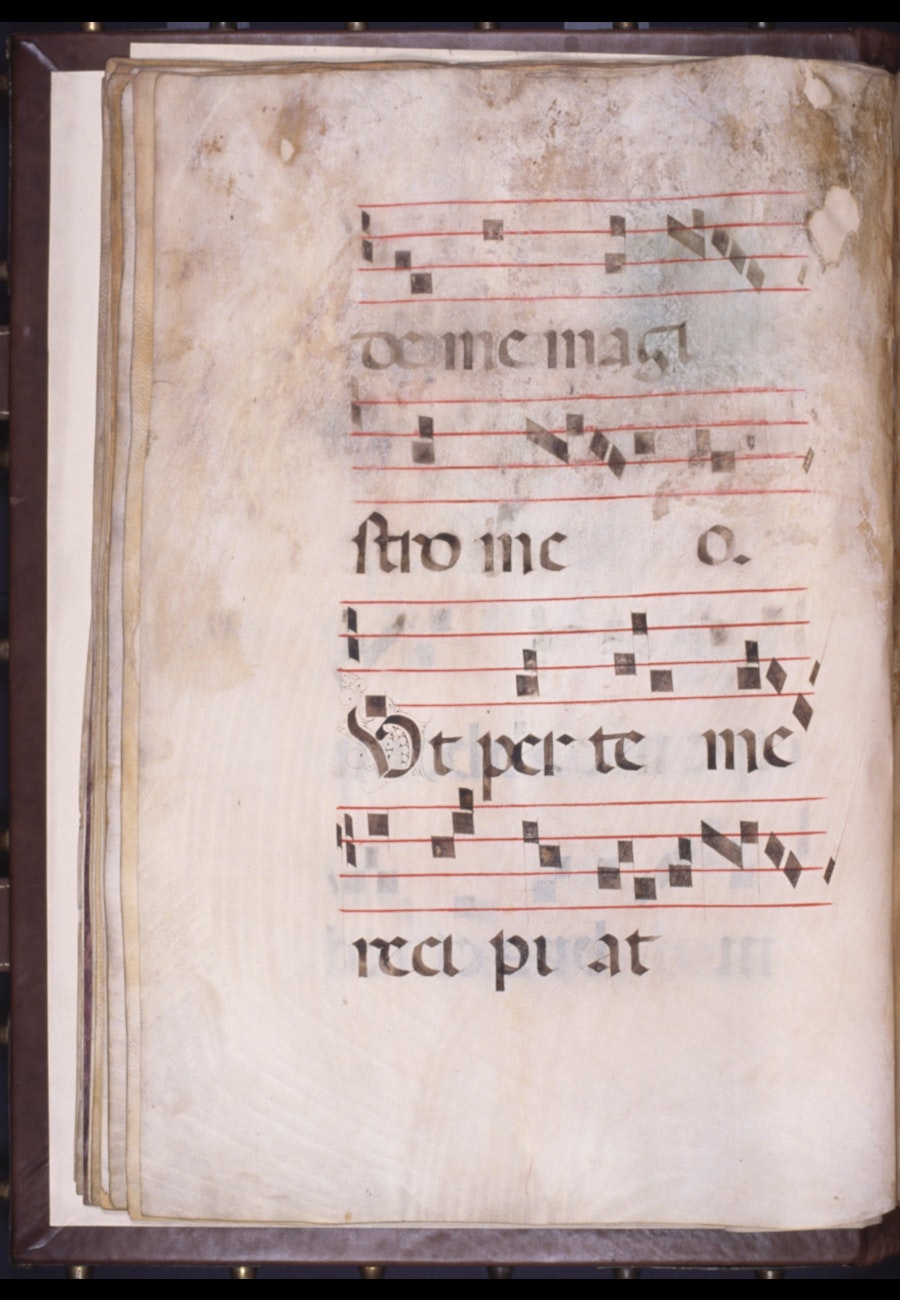 de me magi
stro me o.
Ut per te me
reci pi at